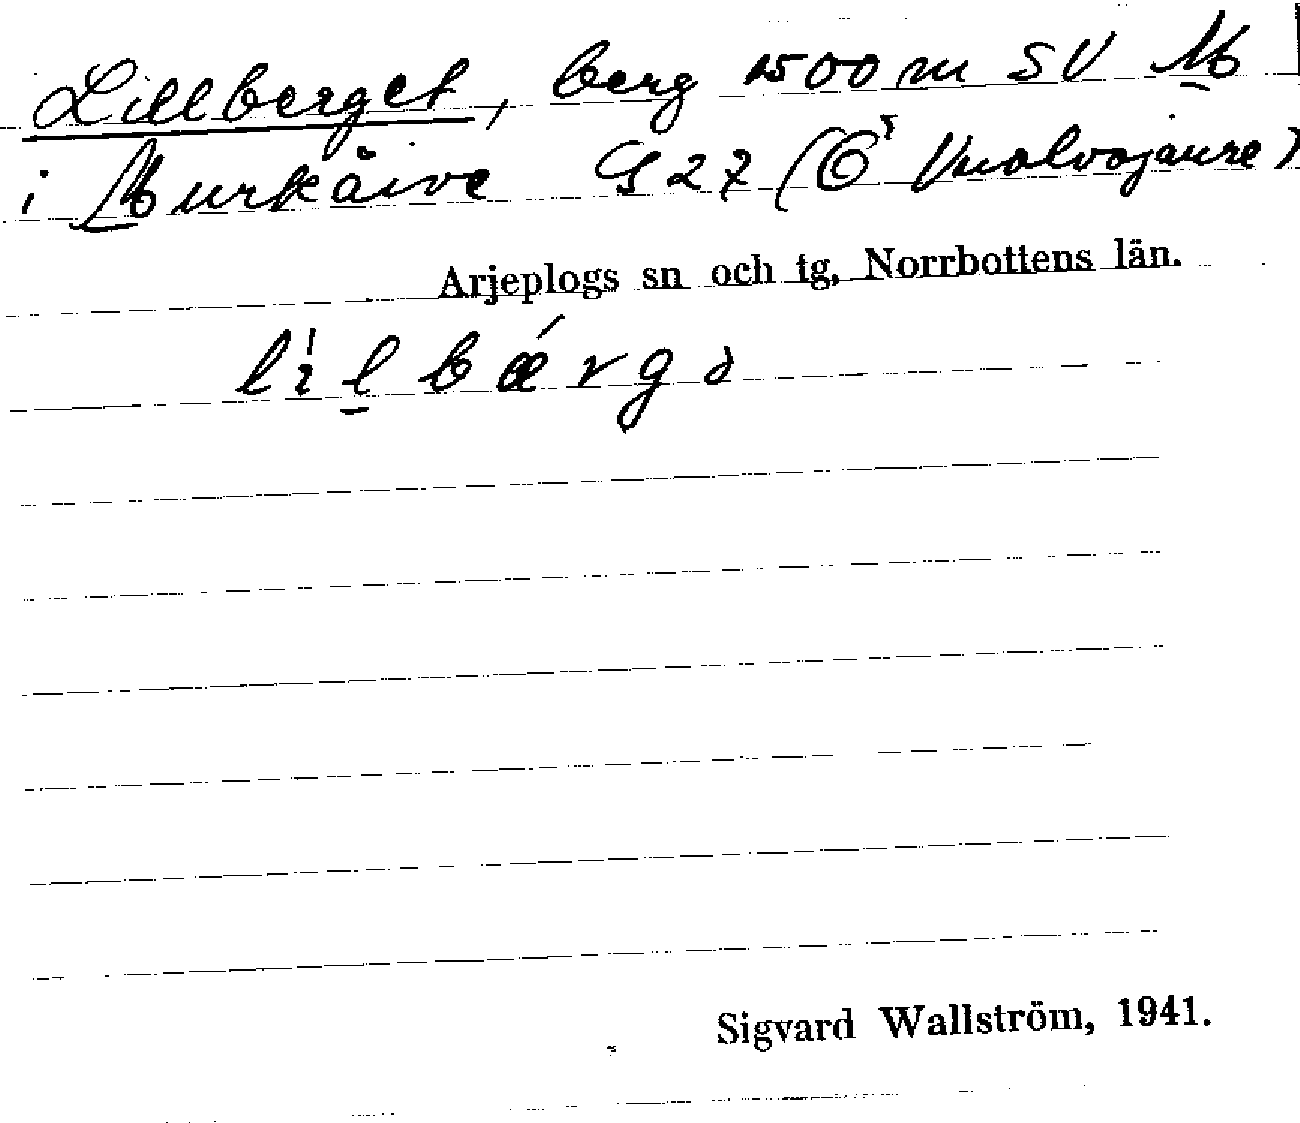 Lillberget, berg 1500 m SV M
i Murkåive G 27 (Ö Vuolvojaure)
Arjeplogs sn och tg, Norrbottens län.
lìl bǽrgə
Sigvard Wallström, 1941.